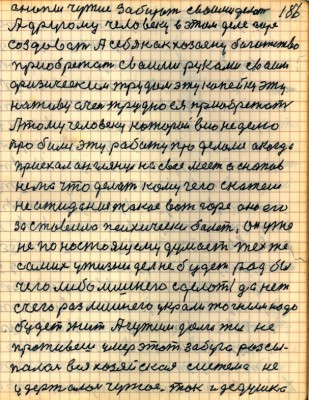 снопи чужие забируть своими делат 186
А другому человеку в этом деле горе
создоват А себя как хозаену богатство
приобретат своими руками своим
физическим трудом эту копейку эту
нативу очен трудно ея приобретат
А тому человеку которий вию неделю
про били эту работу про делали а когда
приехал он глянул на свое место снопов
нема что делат кому чего скажеш
не ожидания такое вот горе оно его
заставило психически болет, он уже
не по настоящему думает тех же
самих у жизни дел не будет рад бы
чего либо лишнего сделат да нет
с чего раз лишнего украли то чем надо
будет жит А чужим долго ти не
проживеш умер этот забуга розси-
палас вся хозяйская система не
удержалос чужое. так и дедушка